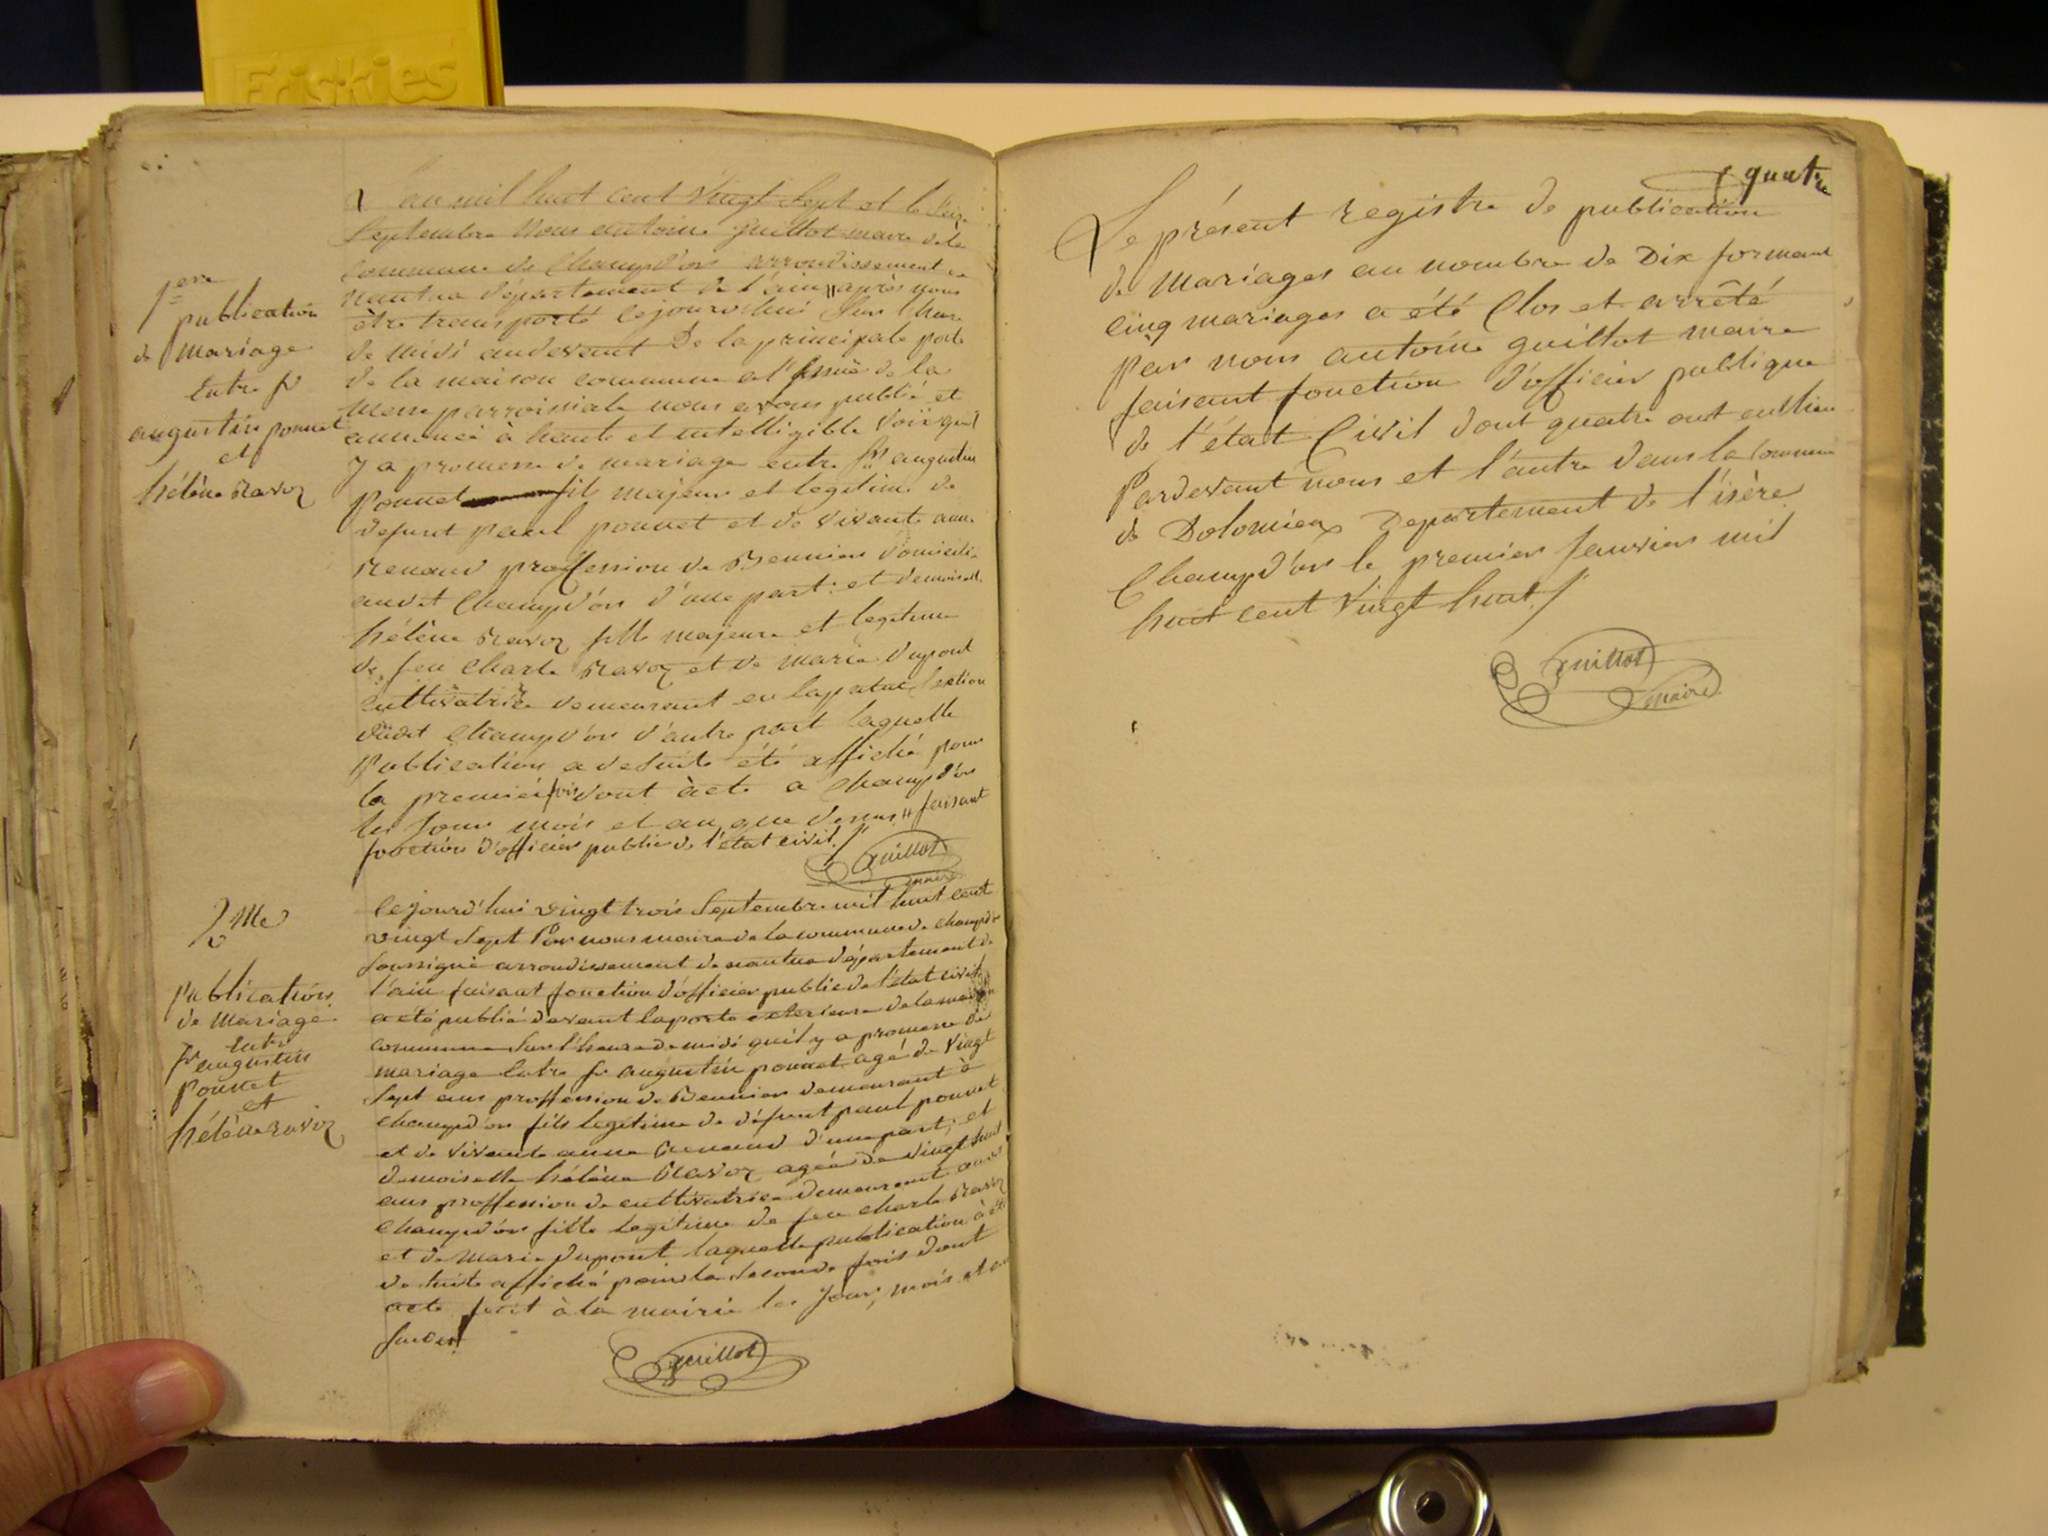 Friskies
L'an mil huit cent vingt sept et le seize
Septembre nous antoine guillot maire de la
commune de Champd'or arrondissement de
nantua département de l'ain // après nous
être transporté cejourd'hui sur l'heure
de midi audevant De la principale porte
de la maison commune a l'issuë de la
Messe parroissiale nous avons publié et
annoncé à haute et intelligible Voix quil
y a promesse de mariage entre fs augustin
Ponnet fils majeur et legitime de
defunt paul ponnet et de vivante anne
Renaud proffession de Bennier domicilié
audit Champd'or d'une part: et demoiselle
hélène Ravoz fille majeure et legitime
de feu Charle Ravoz et de marie Dupont
cultivatrice demeurant en section
dudit Champd'or d'autre part laquelle
Publication a desuite été affiché pour
la premier fois dont acte a Champd'or
les Jour mois et an que dessus // faisant
fonction d'officier public de l'état civil./
Guillot
maire
1ere
publication
de Mariage
Entre fs
augustin ponnet
et
hélène Ravoz
Cejourd'hui vingt trois Septembre mil huit cent
vingt sept Par nous maire de la commune de champd'or
soussigné arrondissement de nantua département de
l'ain faisant fonction d'officier public de l'état civil
a été publié devant la porte exterieure de la maison
commune sur l'heure de midi quil y a promesse de
mariage Entre fs augustin ponnet agé de vingt
sept ans proffession de Bennier demeurant à
champd'or fils legitime de défunt paul ponnet
et de vivante anne Renaud d'une part; et
demoiselle hélène Ravoz agée de vingt huit
ans proffession de cultivatrice demeurant audit
Champd'or fille legitime de feu charle Ravoz
et de marie Dupont laquelle publication à été
de suite affiché pour la seconde fois dont
acte fait à la mairie les Jour, mois et an
susdit
Guillot
2Me
Publication
de Mariage
Entre
fs augustin
Ponnet
et
hélène ravoz
quatre
Le présent registre de publication
de Mariages au nombre de Dix formant
cinq mariages a été Clos et arrêté
Par nous antoine guillot maire
faisant fonction d'officier publique
de l'état Civil dont quatre ont eu lieu
Pardevant nous et l'autre dans la Commune
de Dolomieu Departement de l'isère
Champd'or le premier Janvier mil
huit cent vingt huit./
Guillot
maire